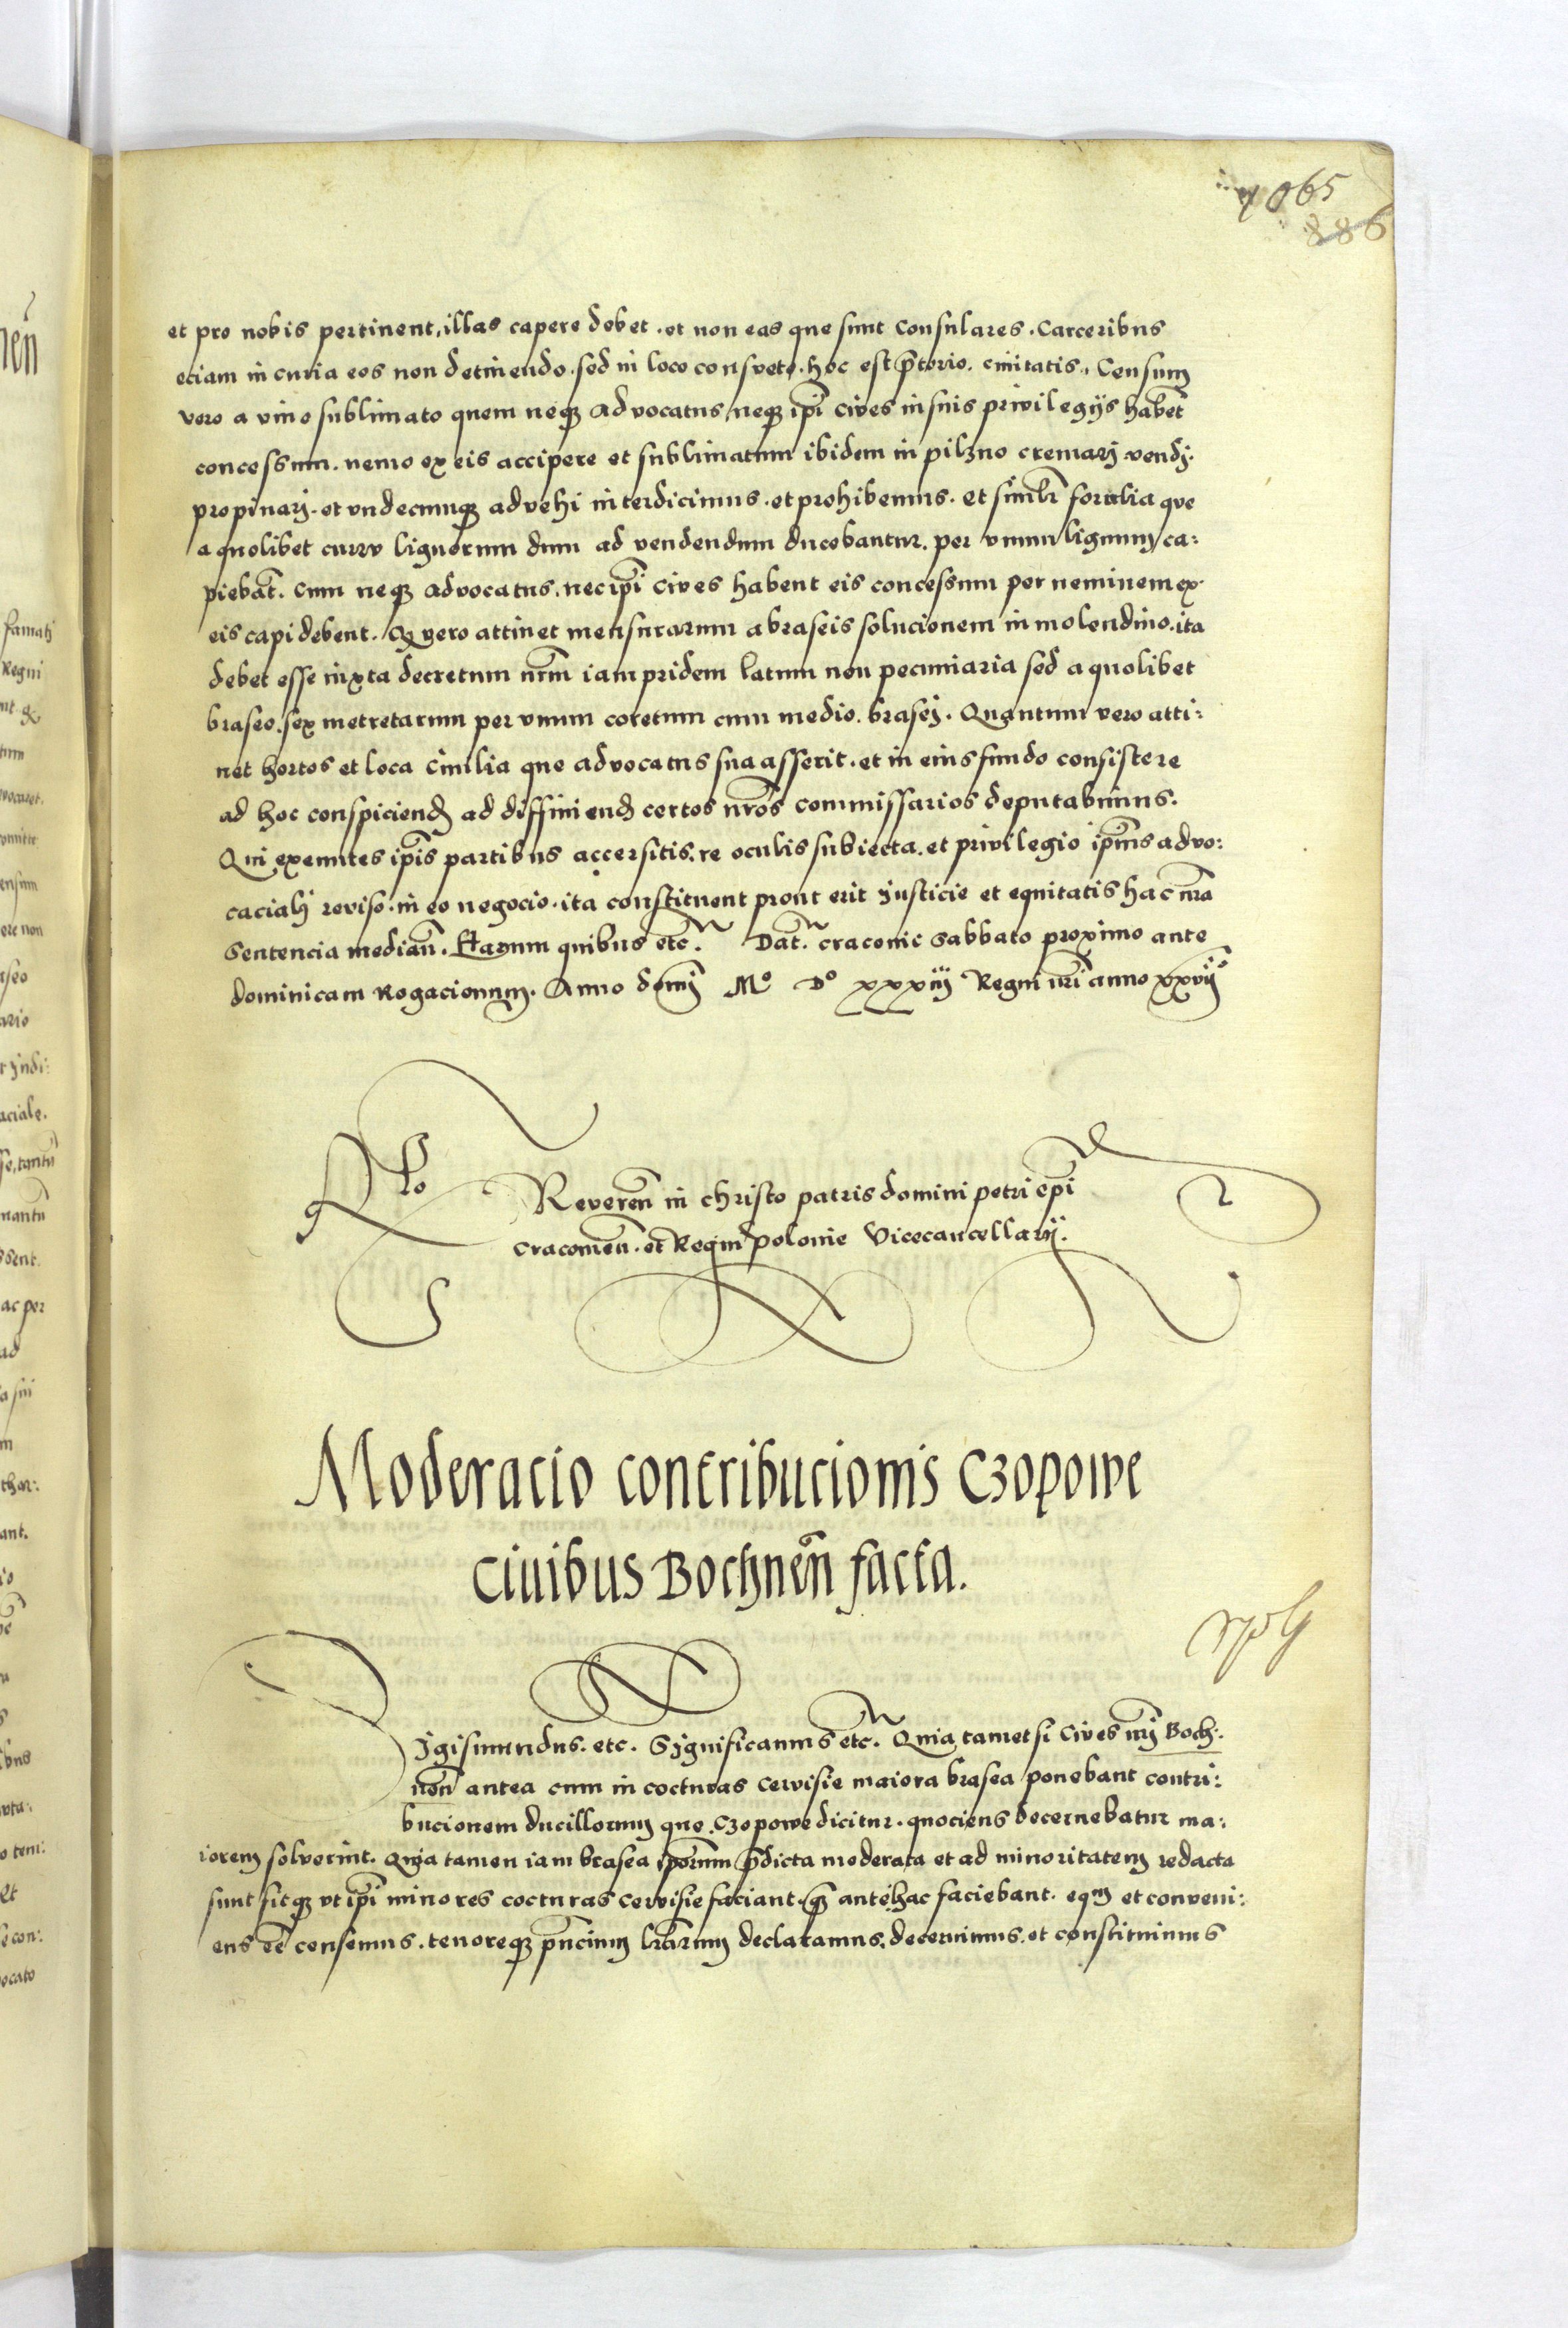 065
886
et pro nobis pertinent, illas capere debet . et non eas que sunt Consulares . Carceribus
eciam in curia eos non detinendo . sed in loco consueto . hoc est p̄torio . civitatis . Censum
vero a vino sublimato quem neq3 advocatus neq3 ip̄i cives in suis privilegijs haben̄t
concessum . nemo ex eis accipere et sublimatum ibidem in pilzno cremarj vendj .
propinarj . et undecumq3 advehi interdicimus . et prohibemus . et simil̄r foralia que
a quolibet curru lignorum dum ad vendendum ducebantur . per unum lignum ca:
piebāt . cum neq3 advocatus . nec ip̄i cives habent eis concessum per neminem ex
eis capi debent . Q3 vero attinet mensurarum a braseis solucionem in molendino . ita
debet esse iuxta decretum nr̄m iampridem latum non pecuniaria sed a quolibet
braseo . sex metretarum per unum coretum cum medio . brasej . Quantum vero atti:
net hortos et loca Civilia que advocatus sua asserit . et in eius fundo consistere
ad hoc conspiciend̄ ad diffiniend̄ certos nr̄os commissarios deputabimus .
Qui exeuntes ip̄is partibus accersitis . re oculis subiecta . et privilegio ip̄ius advo:
cacialj reviso . in eo negocio . ita constituent prout erit justicie et equitatis hac nr̄a
sentencia median̄ . Harum quibus etc̄ . Dat̄ . cracovie sabbato proximo ante
dominicam Rogacionum . Anno domj M° D° xxxiij Regni nr̄i anno xxvij°
Rlo Reveren̄ in christo patris domini petri ep̄i
cracovien̄ . et Regni polonie Vicecancellarij .
Moderacio contribucionis Czopowe
Civibus Bochnen̄ facta .
Sigismundus . etc . Significamus etc̄ . Quia tametsi Cives nr̄j Boch:
nen̄ antea cum in cocturas cervisie maiora brasea ponebant contri:
bucionem ducillorum que Czopowe dicitur . quociens decernebatur ma:
iorem solverint . Quia tamen iam brasea ip̄orum p̄dicta moderata et ad minoritatem redacta
sunt fitq3 ut ip̄i minores cocturas cervisie faciant . q̄3 antehac faciebant . eqm̄ et conveni:
ens ēe censemus . tenoreq3 p̄ncium lr̄arum declaramus . decernimus . et constituimus